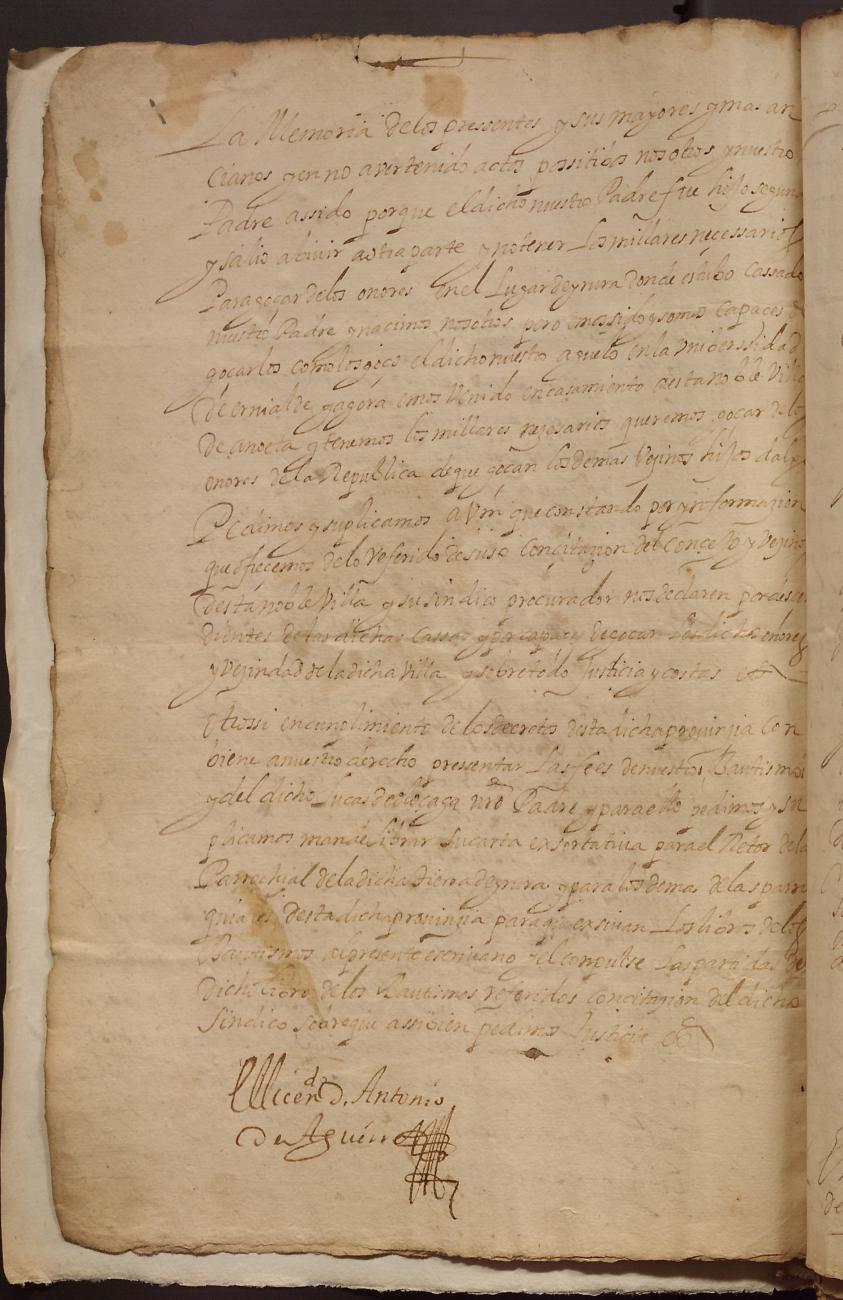 La Memoria de los pressentes y sus mayores y mas an
cianos y en no aver tenido actos possitibos nosotros y nuestro
Padre assido porque el dicho nuestro Padre fue hijo segun
y salio a bivir a otra parte y no tener Los millares neçessarios
Para goçar de los onores en el Lugar de yrura donde estubo cassado
nuestro Padre y nacimos nosotros pero emos sido y somos capaces de
goçarlos como los goço el dicho nuestro aguelo en la Uniberssidad
de ernialde y agora emos Venido en casamiento a esta noble Villa
de anoeta y tenemos los millares neçesarios queremos goçar de los
onores de la Republica de que goçan los demas Veçinos hijos dalgo
Pedimos y suplicamos a Vm que constando por ynformazion
que ofreçemos de lo Referido de suso con çitazion del Conçejo y Veçinos
desta noble Villa y su sindico procurador nos declaren por desçen
dientes de las dichas Cassas y por capaces de goçar los dichos onores
y Veçindad de la dicha Villa y sobre todo Justicia y costas etª
Otrossi en cumplimiento de los decretos desta dicha provinçia Con
biene a nuestro derecho pressentar Las fees de nuestros Bautismos
y del dicho Lucas de oloçaga nrō Padre y para ello pedimos y su
plicamos mande librar su carta exsortativa para el Retor de la
Parrochial de la dicha tierra de yrura y para los demas de las parro
quiales desta dicha provinçia para que exsivan Los libros de los
Bautismos al pressente escrivano y el compulse Las partidas de
dicho libro de los Bautismos referidos con citazion del dicho
Sindico sobre que assibien pedimos Justicia etª
El Licendº D. Antonio
de Aguirre